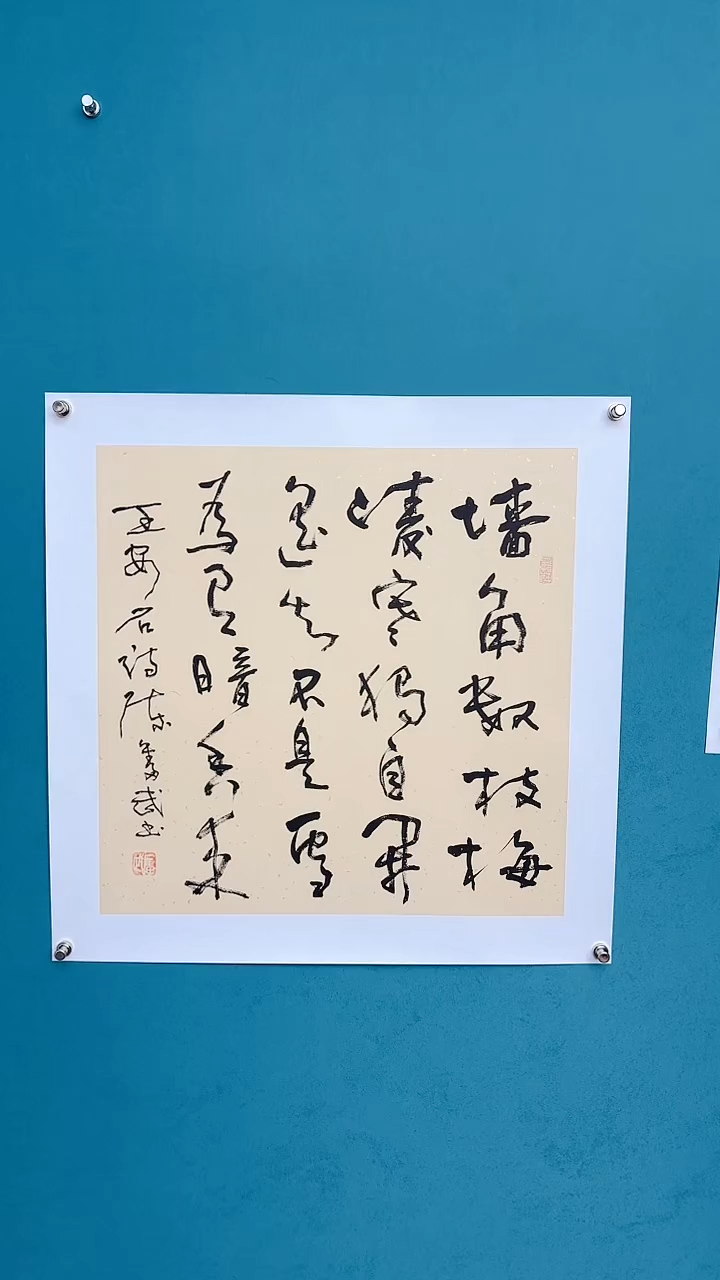 墙角数枝梅
凌寒獨自開
遥知不是雪
為有暗香来
王安石詩陈武书